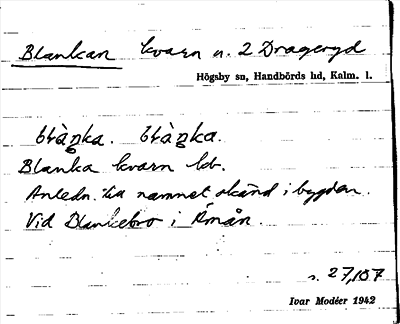 Blankan kvarn n. 2 Drageryd
Högsby sn, Handbörds hd, Kalm. l.
blàŋka. blàŋka.
Blanka kvarn ldv.
Anledn. till namnet okänd i bygden.
Vid Blankebro i Åmån.
s. 27, 107
Ivar Modéer 1942